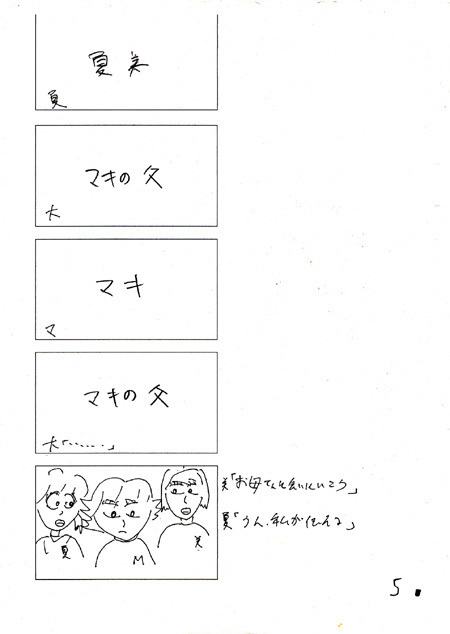 夏美
夏
マキの父
大
マキ
マ
マキの父
大「……」
美「お母さんに会いにいこう」
夏「うん、私が伝える」
夏
M
美
5.